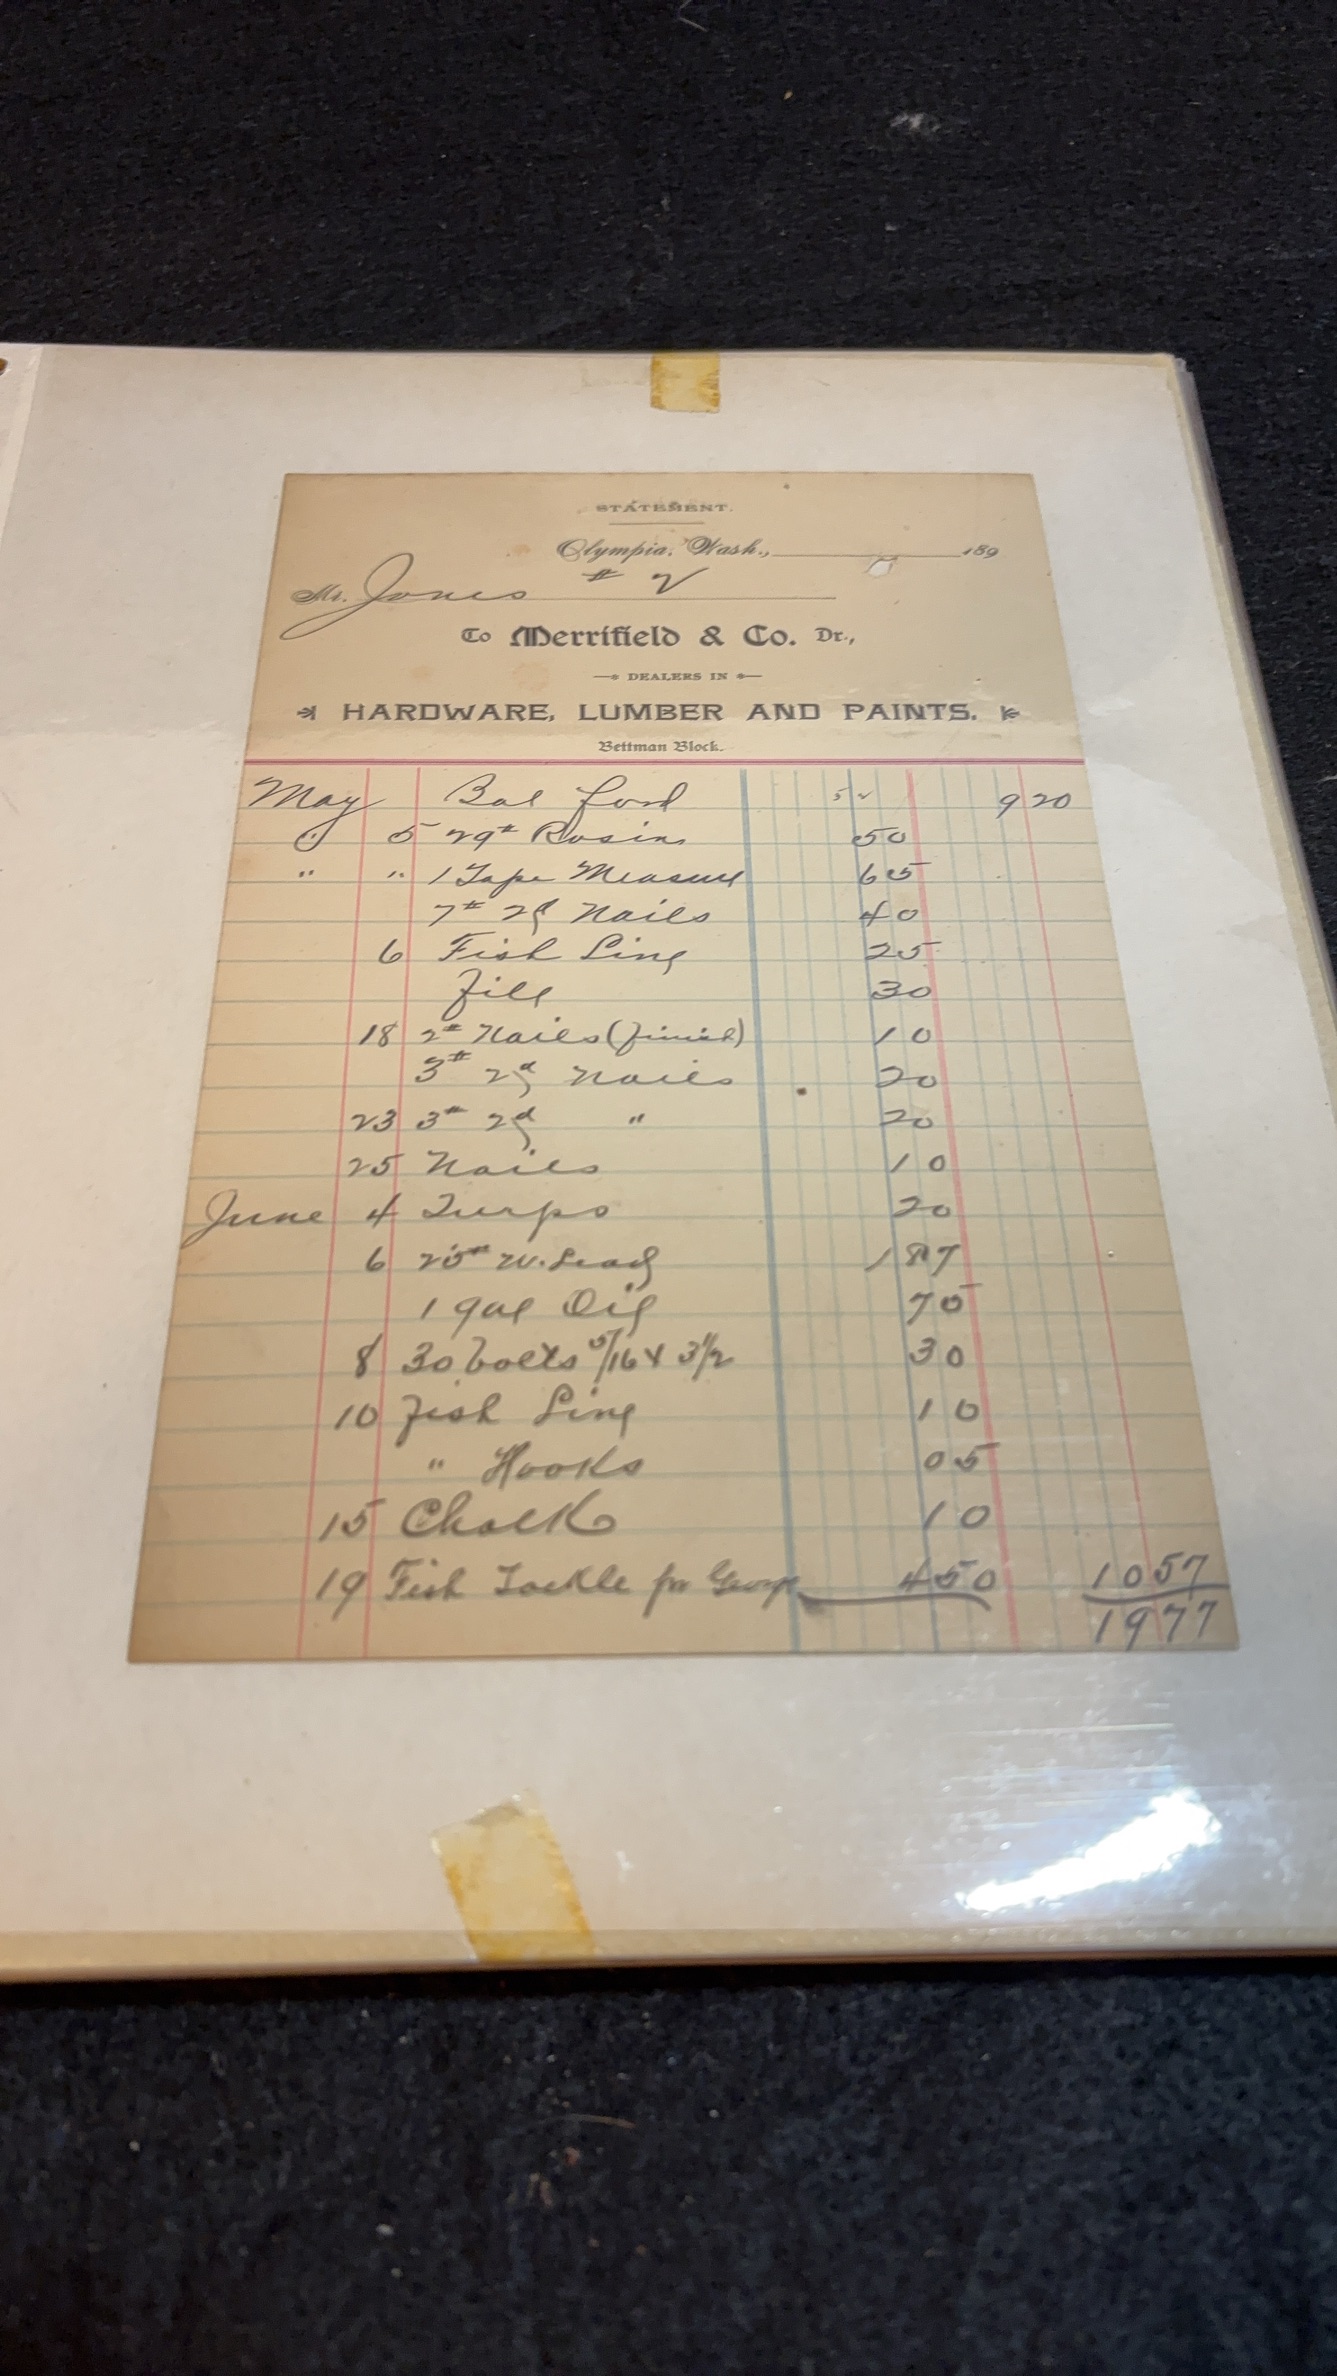 STATEMENT.
Olympia, Wash., 189
Mr. Jones # 2
To Merrifield & Co. Dr.,
DEALERS IN
HARDWARE, LUMBER AND PAINTS.
Bettman Block.
May Bal ford 52 9 20
5 29# Rosin 50
" " 1 Tape Measure 65
7# 2d Nails 40
6 Fish Line 25
File 30
18 2# Nails (finish) 10
3# 2d Nails 20
23 3# 2d " 20
25 Nails 10
June 4 Turps 20
6 25# W. Lead 1 87
1 gal Oil 75
8 30 bolts 5/16 x 3 1/2 30
10 Fish Line 10
" Hooks 05
15 Chalk 10
19 Fish Tackle for George 4 50 10 57
19 77